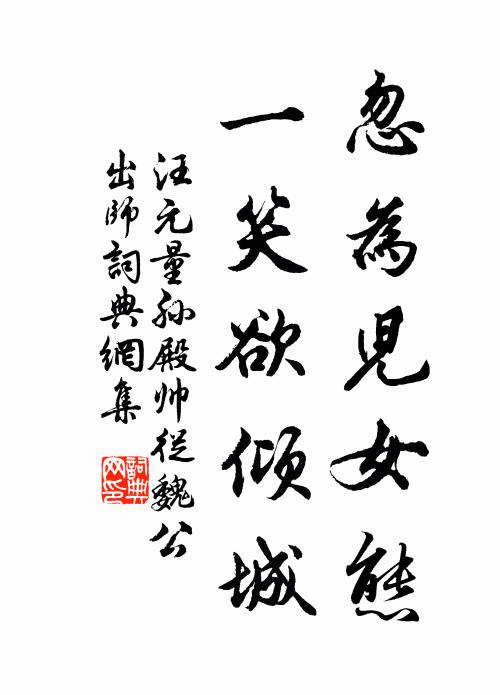 忽為兒女態
一笑欲傾城
汪元量孫殿帅從魏公
出師詞典網集
詞典网印